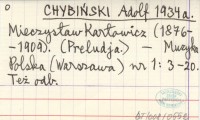 CHYBIŃSKI Adolf 1934a.
Mieczysław Karłowicz (1876-
-1909). (Preludja.) - Muzyka
Polska (Warszawa) nr 1: 3-20.
Też odb.